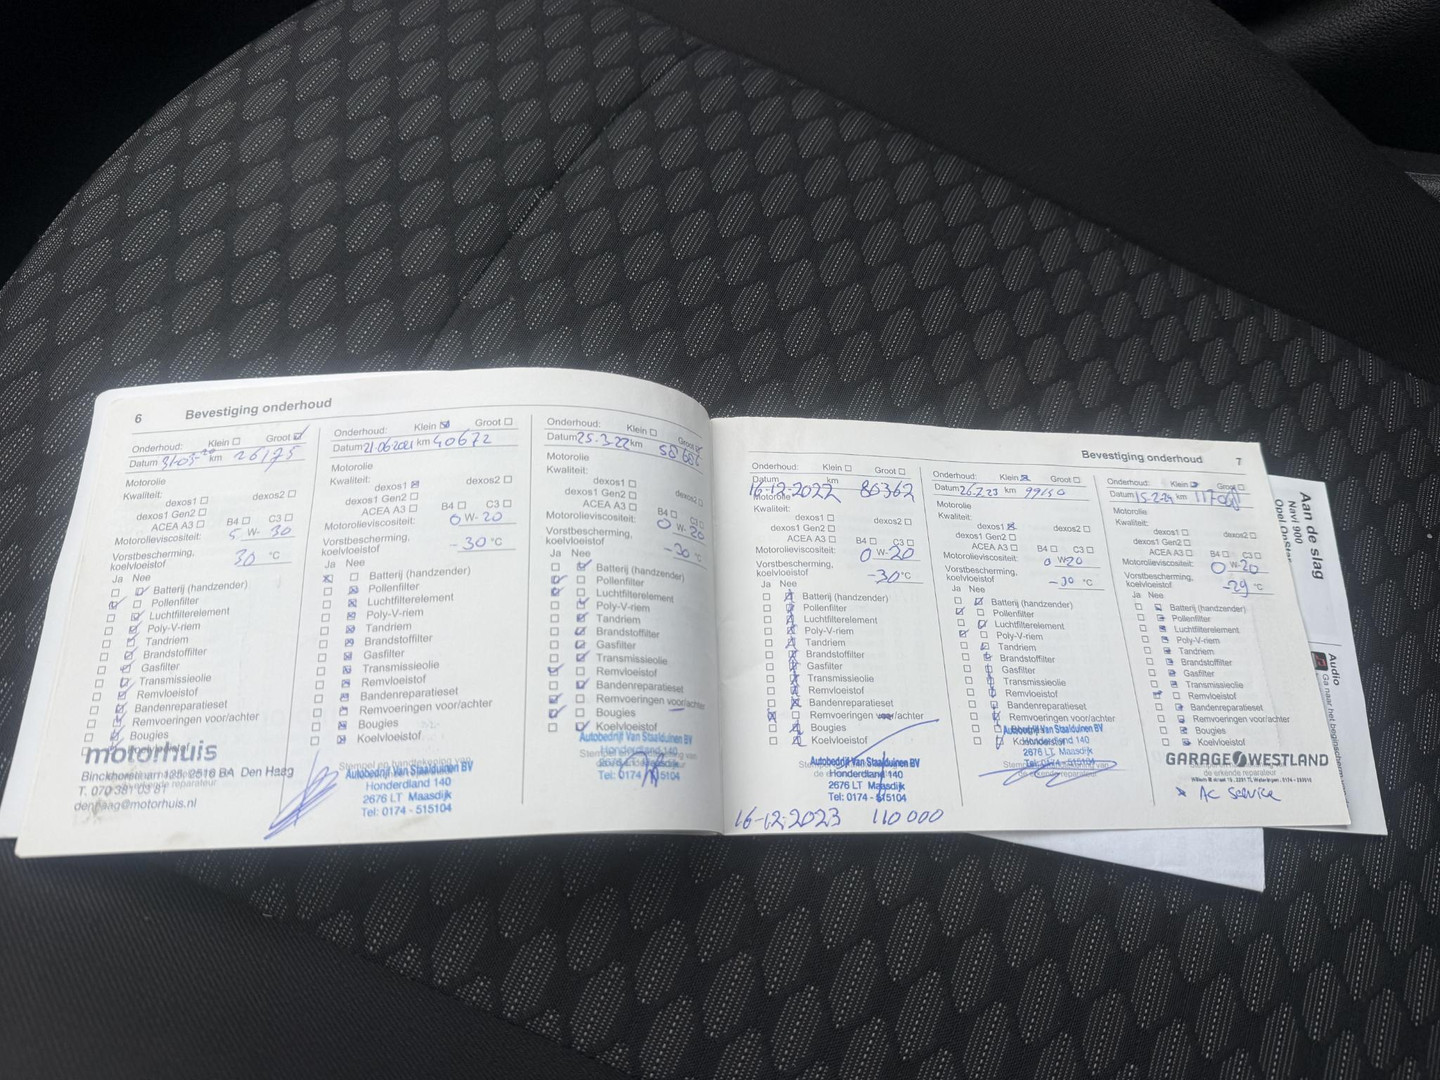 6
Bevestiging onderhoud
Onderhoud: Klein Groot
Datum 31-03-20 km 26175
Motorolie
Kwaliteit:
dexos1 dexos2
dexos1 Gen2
ACEA A3 B4 C3
Motorolieviscositeit: 5 W- 30
Vorstbescherming,
koelvloeistof 30 °C
Ja Nee
Batterij (handzender)
Pollenfilter
Luchtfilterelement
Poly-V-riem
Tandriem
Brandstoffilter
Gasfilter
Transmissieolie
Remvloeistof
Bandenreparatieset
Remvoeringen voor/achter
Bougies
motorhuis
Binckhorstlaan 135, 2516 BA Den Haag
T. 070 381 03 81
denhaag@motorhuis.nl
Onderhoud: Klein Groot
Datum 21-06-2021 km 40672
Motorolie
Kwaliteit:
dexos1 dexos2
dexos1 Gen2
ACEA A3 B4 C3
Motorolieviscositeit: 0 W- 20
Vorstbescherming,
koelvloeistof -30 °C
Ja Nee
Batterij (handzender)
Pollenfilter
Luchtfilterelement
Poly-V-riem
Tandriem
Brandstoffilter
Gasfilter
Transmissieolie
Remvloeistof
Bandenreparatieset
Remvoeringen voor/achter
Bougies
Koelvloeistof
Autobedrijf Van Staalduinen BV
Honderdland 140
2676 LT Maasdijk
Tel: 0174 - 515104
Onderhoud: Klein Groot
Datum 25-3-22 km
Motorolie
Kwaliteit:
dexos1 dexos2
dexos1 Gen2
ACEA A3 B4 C3
Motorolieviscositeit: 0 W- 20
Vorstbescherming,
koelvloeistof -30 °C
Ja Nee
Batterij (handzender)
Pollenfilter
Luchtfilterelement
Poly-V-riem
Tandriem
Brandstoffilter
Gasfilter
Transmissieolie
Remvloeistof
Bandenreparatieset
Remvoeringen voor/achter
Bougies
Koelvloeistof
Autobedrijf Van Staalduinen BV
Honderdland 140
2676 LT Maasdijk
Tel: 0174 - 515104
Bevestiging onderhoud 7
Onderhoud: Klein Groot
Datum 16-12-2022 km 86362
Motorolie
Kwaliteit:
dexos1 dexos2
dexos1 Gen2
ACEA A3 B4 C3
Motorolieviscositeit: 0 W-20
Vorstbescherming,
koelvloeistof -30 °C
Ja Nee
Batterij (handzender)
Pollenfilter
Luchtfilterelement
Poly-V-riem
Tandriem
Brandstoffilter
Gasfilter
Transmissieolie
Remvloeistof
Bandenreparatieset
Remvoeringen voor/achter
Bougies
Koelvloeistof
Autobedrijf Van Staalduinen BV
Honderdland 140
2676 LT Maasdijk
Tel: 0174 - 515104
16-12-2023 110 000
Onderhoud: Klein Groot
Datum 26-7-23 km 99150
Motorolie
Kwaliteit:
dexos1 dexos2
dexos1 Gen2
ACEA A3 B4 C3
Motorolieviscositeit: 0 W20
Vorstbescherming,
koelvloeistof -30 °C
Ja Nee
Batterij (handzender)
Pollenfilter
Luchtfilterelement
Poly-V-riem
Tandriem
Brandstoffilter
Gasfilter
Transmissieolie
Remvloeistof
Bandenreparatieset
Remvoeringen voor/achter
Bougies
Autobedrijf Van Staalduinen BV
Honderdland 140
2676 LT Maasdijk
Tel: 0174 - 515104
Onderhoud: Klein Groot
Datum 15-2-24 km
Motorolie
Kwaliteit:
dexos1 dexos2
dexos1 Gen2
ACEA A3 B4 C3
Motorolieviscositeit: 0 W-20
Vorstbescherming,
koelvloeistof -29 °C
Ja Nee
Batterij (handzender)
Pollenfilter
Luchtfilterelement
Poly-V-riem
Tandriem
Brandstoffilter
Gasfilter
Transmissieolie
Remvloeistof
Bandenreparatieset
Remvoeringen voor/achter
Bougies
Koelvloeistof
GARAGE WESTLAND
de erkende reparateur
* AC Service
Aan de slag
Navi 900
Opel OnStar
Audio
Ga naar het beginscherm